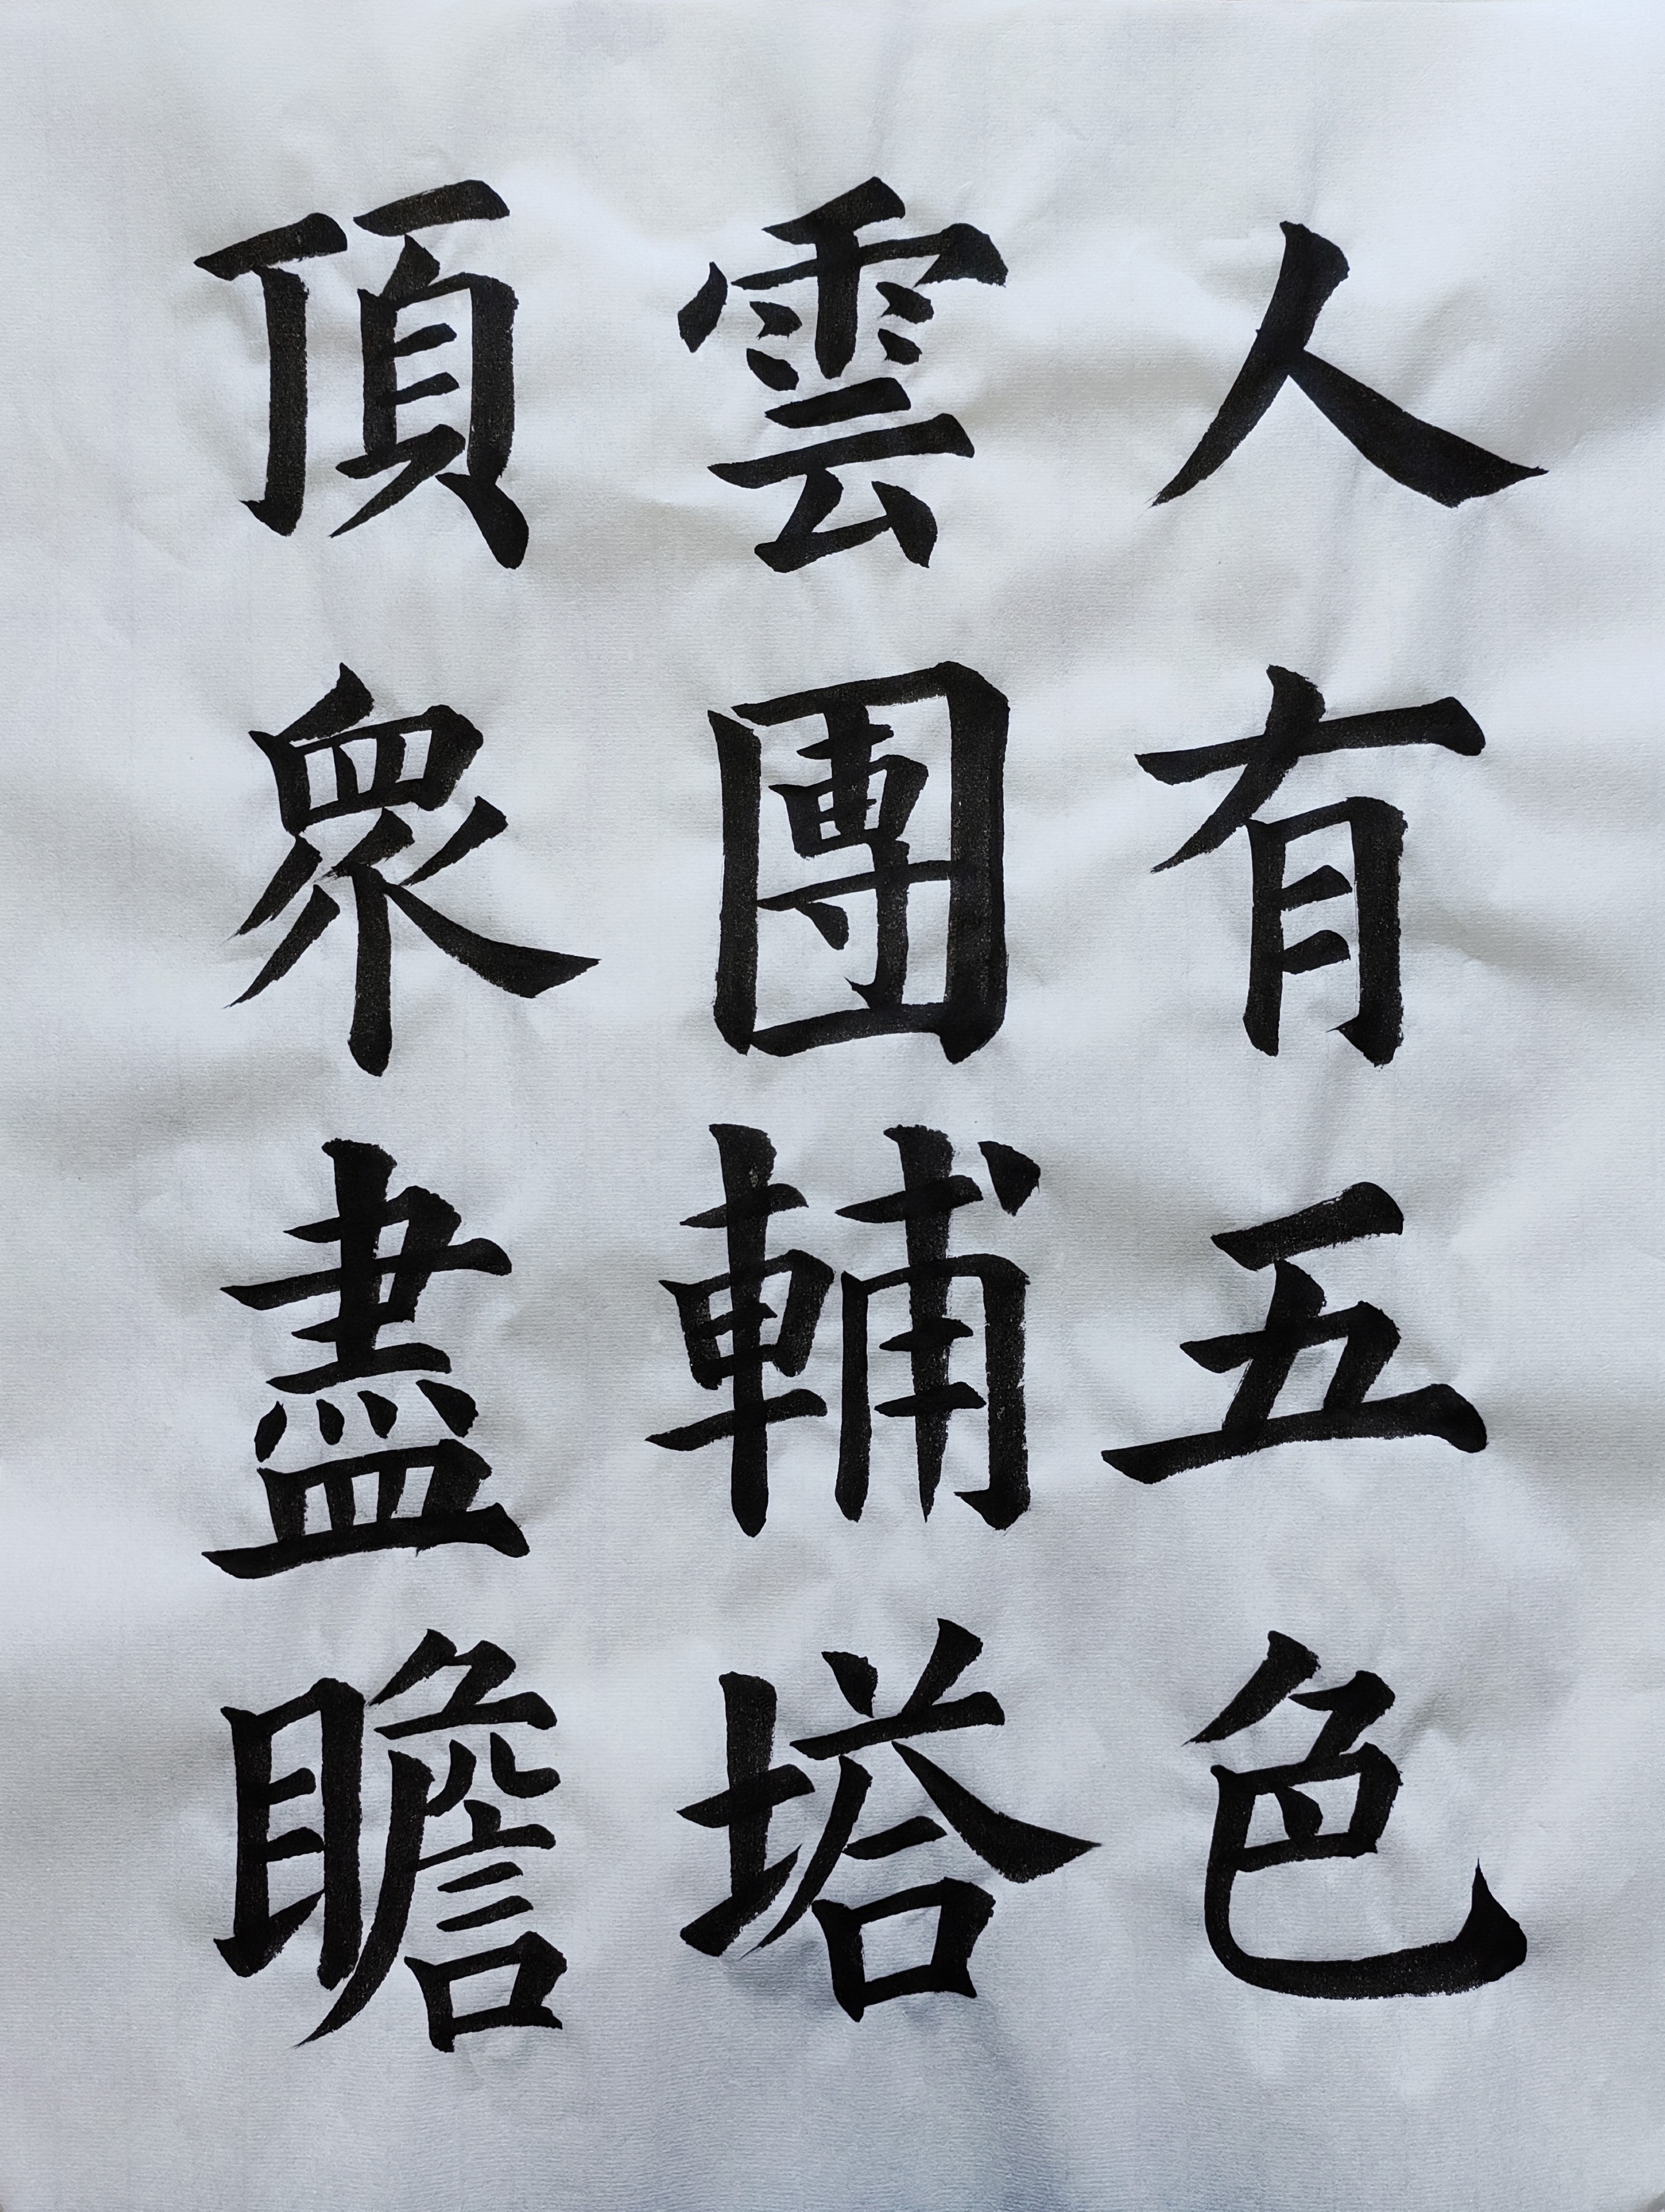 人有五色
雲團輔塔
頂衆盡瞻